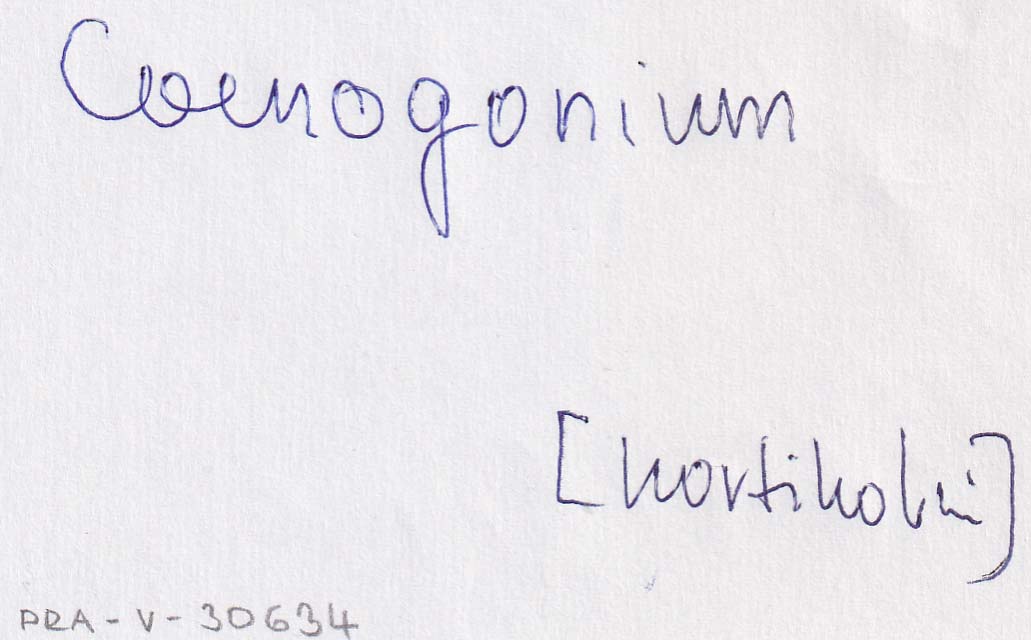 Coenogonium
[kortikolní]
PRA-V-30634